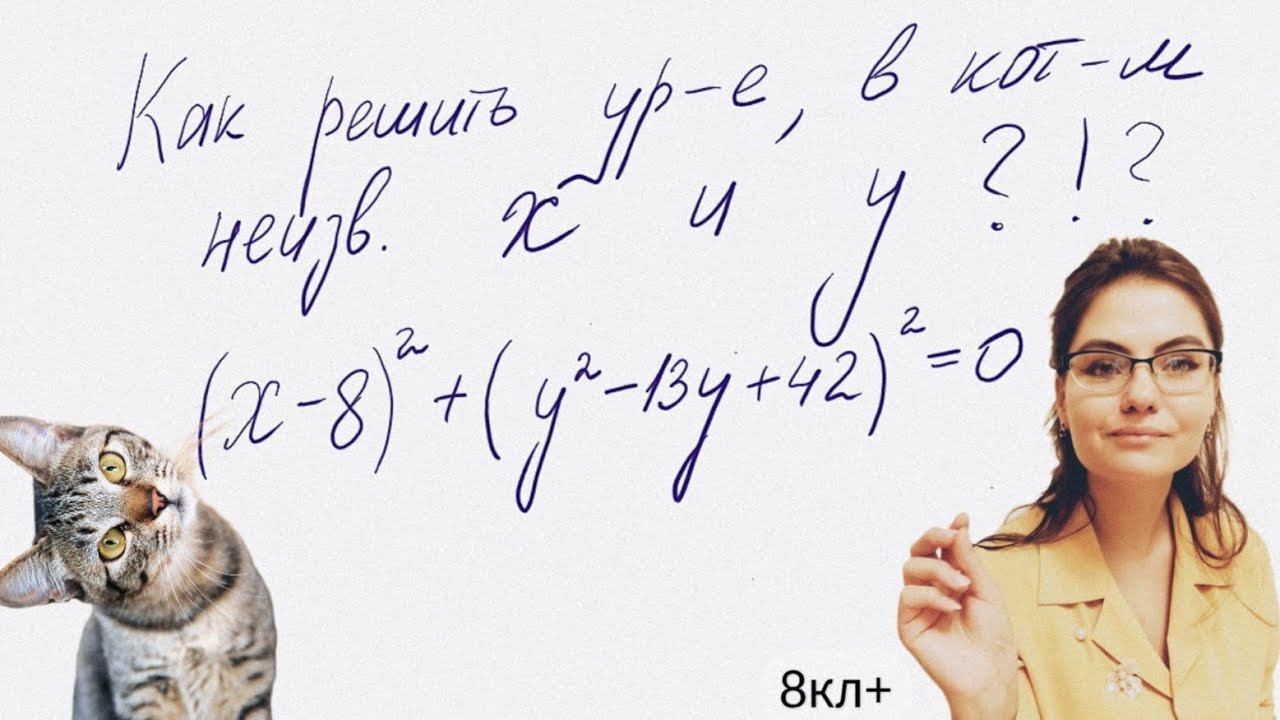 Как решить ур-е, в кот-м
неизв. x и y ?!?
(x-8)² + (y²-13y+42)² = 0
8кл+